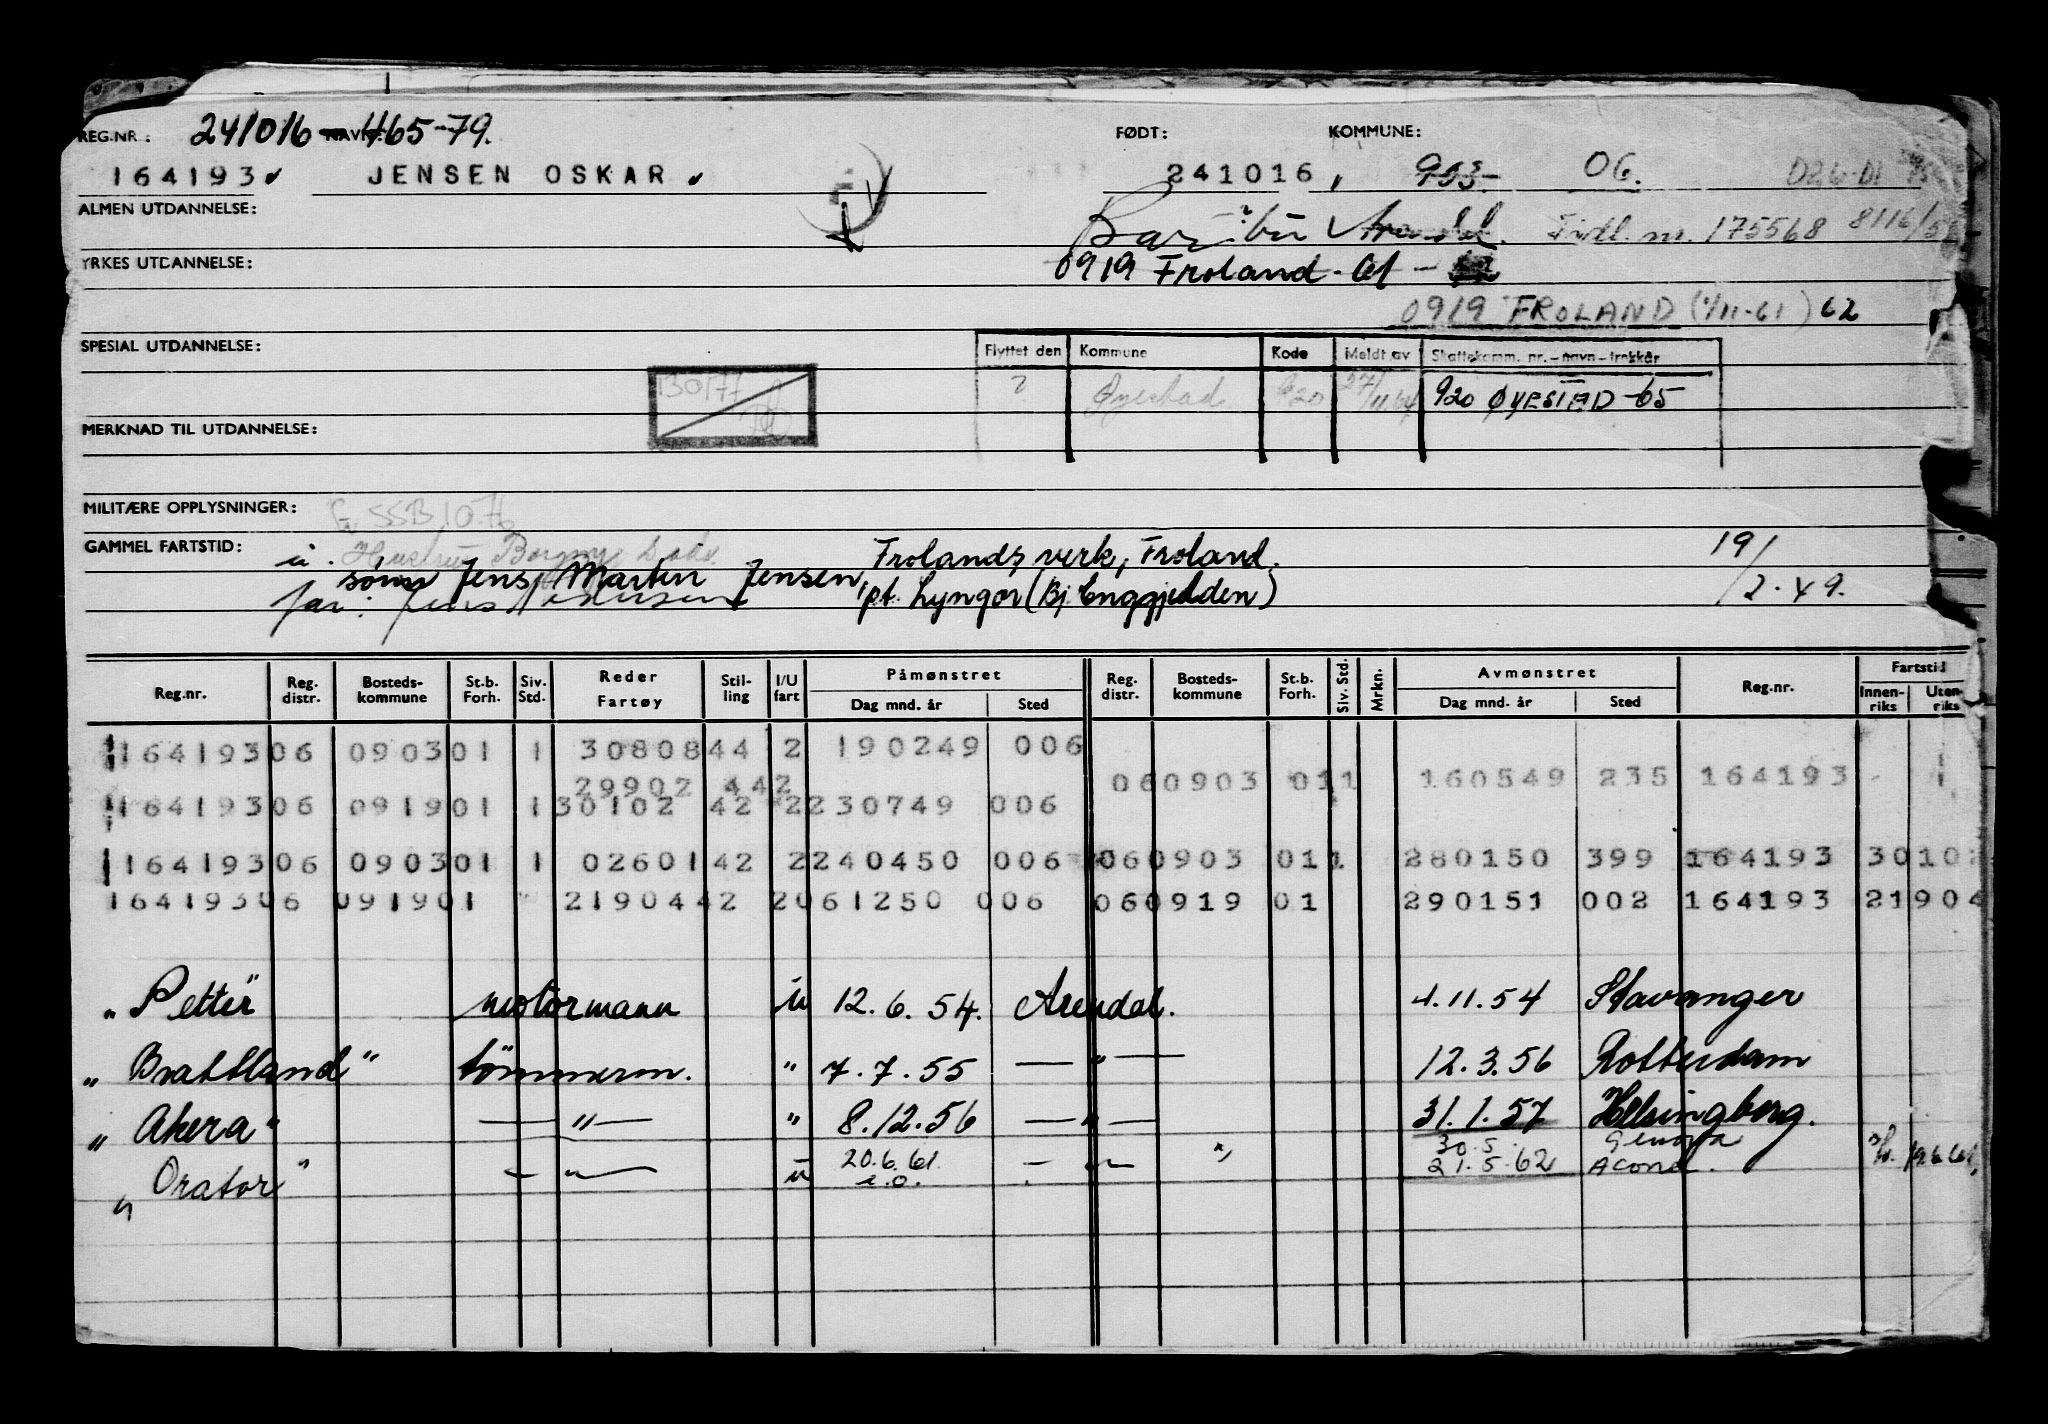 REG.NR.: 241016-46579. NAVN:
FØDT: KOMMUNE:
164193 JENSEN OSKAR 241016, 903- 06.
ALMEN UTDANNELSE:
Arendal. Fidl. nr. 175568 8116/
YRKES UTDANNELSE:
0919 Froland - 61 -
0919 FROLAND (1/11-61) 62
SPESIAL UTDANNELSE:
Flyttet den Kommune Kode Meldt av Skattekomm. nr. - navn - trekkår
? Øyestad 920 27/11.64 920 ØYESTAD -65
130177
MERKNAD TIL UTDANNELSE:
MILITÆRE OPPLYSNINGER: SSB 10.76
GAMMEL FARTSTID: u. Hustru Borgny
Frolands verk, Froland. 19/
sønn Jens Martin Jensen, pt. Lyngør (Bj. Enggjedden) 2.49.
far: Jens
Reg.nr. Reg. distr. Bosteds-kommune St.b. Forh. Siv. Std. Reder Fartøy Stil-ling I/U fart Påmønstret Dag mnd. år Sted Reg. distr. Bosteds-kommune St.b. Forh. Siv. Std. Mrkn. Avmønstret Dag mnd. år Sted Reg.nr. Fartstid Innen-riks Uten-riks
164193 06 0903 01 1 30808 44 2 190249 006
29902 44 2 06 0903 01 1 160549 235 164193
164193 06 0919 01 1 30102 42 2 230749 006
164193 06 0903 01 1 02601 42 2 240450 006 06 0903 01 1 280150 399 164193 30102
164193 06 0919 01 21904 42 2 061250 006 06 0919 01 290151 002 164193 21904
"Petter" motormann u 12.6.54. Arendal. 4.11.54 Stavanger
"Brattland" tømmerm. " 7.7.55 — " — 12.3.56 Rotterdam
"Akera" — " — " 8.12.56 — " — 31.1.57 Helsingborg.
30.5 Genova
"Orator" — " — u 20.6.61. — " — " 21.5.62 19.6.61,
i.o.